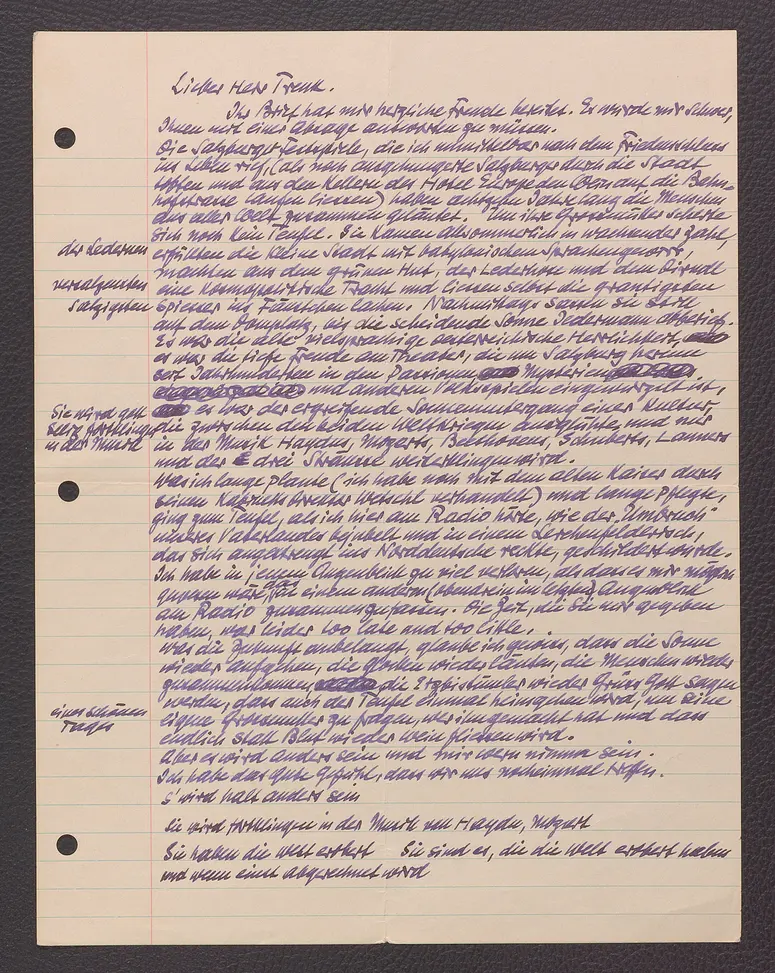 Lieber Herr Trenk.
Ihr Brief hat mir herzliche Freude bereitet. Es würde mir schwer,
Ihnen mit einer Absage antworten zu müssen.
Die Salzburger Festspiele, die ich unmittelbar nach dem Friedensschluss
ins Leben rief, (als noch ausgehungerte Salzburger durch die Stadt
tobten und aus den Kellern des Hotel Europe den Wein auf die Bahn-
hofstrasse laufen liessen) haben achtzehn Jahre lang die Menschen
aus aller Welt zusammen geläutet. Um ihre Grossmütter scherte
sich noch kein Teufel. Sie kamen allsommerlich in wachsender Zahl,
der Ledernen
erfüllten die kleine Stadt mit babylonischem Sprachengewirr,
machten aus dem grünen Hut, der Lederhose und dem Dirndl
versalzensten
eine kosmopolitische Tracht und liessen selbst die grantigsten
salzigsten
Spiesser ins Fäustchen lachen. Nachmittags sassen sie dort
auf dem Domplatz, bis die scheidende Sonne Jedermann abberief.
Es war die alte vielsprachige oesterreichische Herrlichkeit,
es war die tiefe Freude am Theater, die um Salzburg herum
seit Jahrhunderten in den Passionen Mysterien
und anderen Volksspielen eingewurzelt ist,
Sie wird gott
selig fortklingen
in der Musik
es war der ergreifende Sonnenuntergang einer Kultur,
die zwischen den beiden Weltkriegen ausglühte, und nur
in der Musik Haydns, Mozarts, Beethovens, Schuberts, Lanners
und der drei Sträusse weiterklingen wird.
Was ich lange plante (ich habe noch mit dem alten Kaiser durch
seinen Kabinettsdirektor verhandelt) und lange pflegte,
ging zum Teufel, als ich hier am Radio hörte, wie der "Umbruch"
unseres Vaterlandes bejubelt und in einem Lerchenfelderisch,
das sich angestrengt ins Norddeutsche reckte, geschildert wurde.
Ich habe in jenem Augenblick zu viel verloren, als dass es mir möglich
gewesen wäre, für einen andern (obendrein im letzten) Augenblick
am Radio zusammenzufassen. Die Zeit, die Sie mir gegeben
haben, war leider too late and too little.
Was die Zukunft anbelangt, glaube ich gewiss, dass die Sonne
wieder aufgehen, die Glocken wieder läuten, die Menschen wieder
zusammenkommen, die Erzbistümler wieder Grüss Gott sagen
eines schönen
Tages
werden, dass auch der Teufel einmal heimgehen wird, um seine
eigne Grossmutter zu fragen, wer ihn gemacht hat und dass
endlich statt Blut wieder Wein fliessen wird.
Aber es wird anders sein und mir wern nimma sein.
Ich habe das gute Gefühl, dass wir uns nocheinmal treffen.
S' wird halt anders sein
Sie wird fortklingen in der Musik von Haydn, Mozart
Sie haben die Welt erobert Sie sind es, die die Welt erobert haben
und wenn einst abgerechnet wird